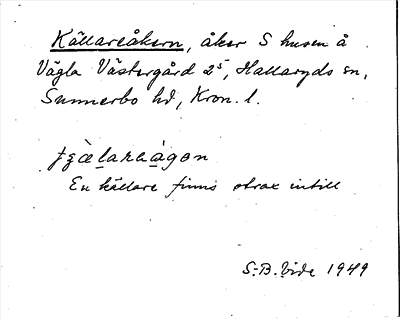 Källareåkern, åker S husen å
Vägla Västergård 2⁵, Hallaryds sn,
Sunnerbo hd, Kron. l.
En källare finns strax intill
S-B. Vide 1949